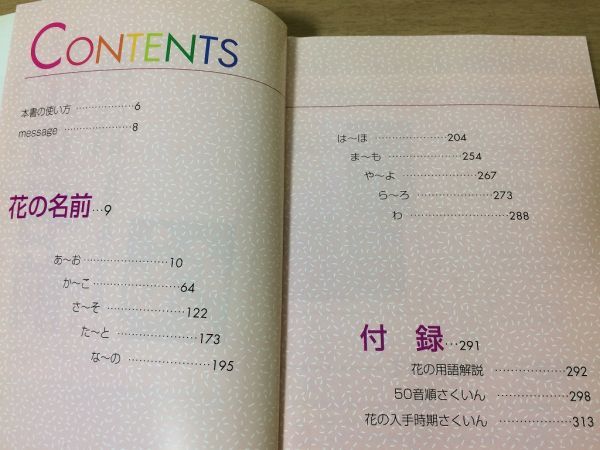 CONTENTS
本書の使い方 ………………6
message ………………8
花の名前…9
あ〜お………………10
か〜こ………………64
さ〜そ………………122
た〜と………………173
な〜の………………195
は〜ほ………………204
ま〜も………………254
や〜よ………………267
ら〜ろ………………273
わ………………288
付 録…291
花の用語解説………………292
50音順さくいん………………298
花の入手時期さくいん…………313